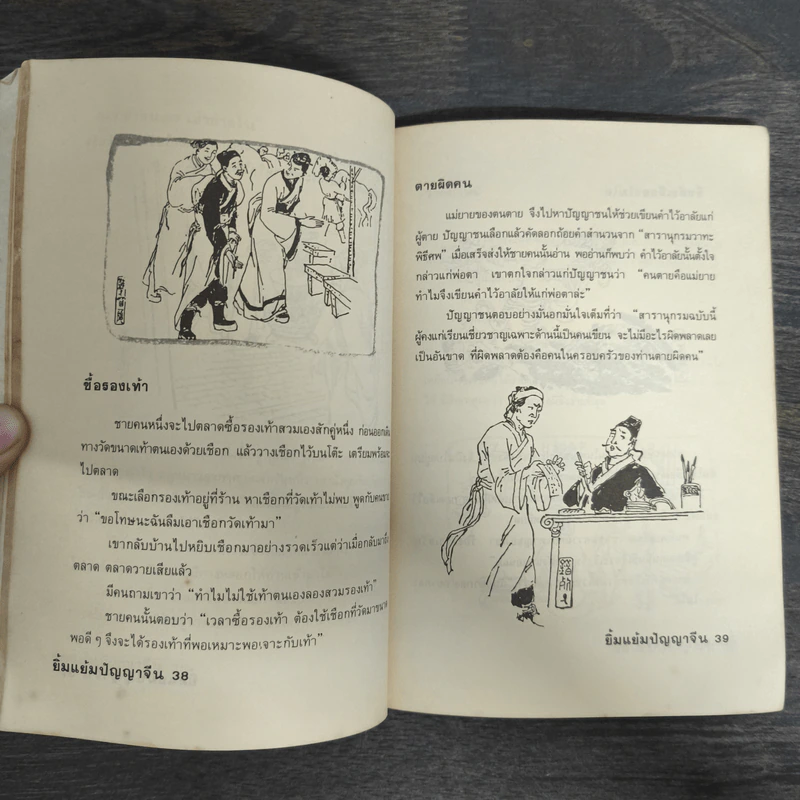 ซื้อรองเท้า
ชายคนหนึ่งจะไปตลาดซื้อรองเท้าสวมเองสักคู่หนึ่ง ก่อนออกเดิน
ทางวัดขนาดเท้าตนเองด้วยเชือก แล้ววางเชือกไว้บนโต๊ะ เตรียมพร้อมจะ
ไปตลาด
ขณะเลือกรองเท้าอยู่ที่ร้าน หาเชือกที่วัดเท้าไม่พบ พูดกับคนขาย
ว่า “ขอโทษนะฉันลืมเอาเชือกวัดเท้ามา”
เขากลับบ้านไปหยิบเชือกมาอย่างรวดเร็วแต่ว่าเมื่อกลับมาถึง
ตลาด ตลาดวายเสียแล้ว
มีคนถามเขาว่า “ทำไมไม่ใช้เท้าตนเองลองสวมรองเท้า”
ชายคนนั้นตอบว่า “เวลาซื้อรองเท้า ต้องใช้เชือกที่วัดมาขนาด
พอดี ๆ จึงจะได้รองเท้าที่พอเหมาะพอเจาะกับเท้า”
ยิ้มแย้มปัญญาจีน 38
ตายผิดคน
แม่ยายของตนตาย จึงไปหาปัญญาชนให้ช่วยเขียนคำไว้อาลัยแก่
ผู้ตาย ปัญญาชนเลือกแล้วคัดลอกถ้อยคำสำนวนจาก “สารานุกรมวาทะ
พิธีศพ” เมื่อเสร็จส่งให้ชายคนนั้นอ่าน พออ่านก็พบว่า คำไว้อาลัยนั้นตั้งใจ
กล่าวแก่พ่อตา เขาตกใจกล่าวแก่ปัญญาชนว่า “คนตายคือแม่ยาย
ทำไมจึงเขียนคำไว้อาลัยให้แก่พ่อตาล่ะ”
ปัญญาชนตอบอย่างมั่นอกมั่นใจเต็มที่ว่า “สารานุกรมฉบับนี้
ผู้คงแก่เรียนเชี่ยวชาญเฉพาะด้านนี้เป็นคนเขียน จะไม่มีอะไรผิดพลาดเลย
เป็นอันขาด ที่ผิดพลาดต้องคือคนในครอบครัวของท่านตายผิดคน”
ยิ้มแย้มปัญญาจีน 39